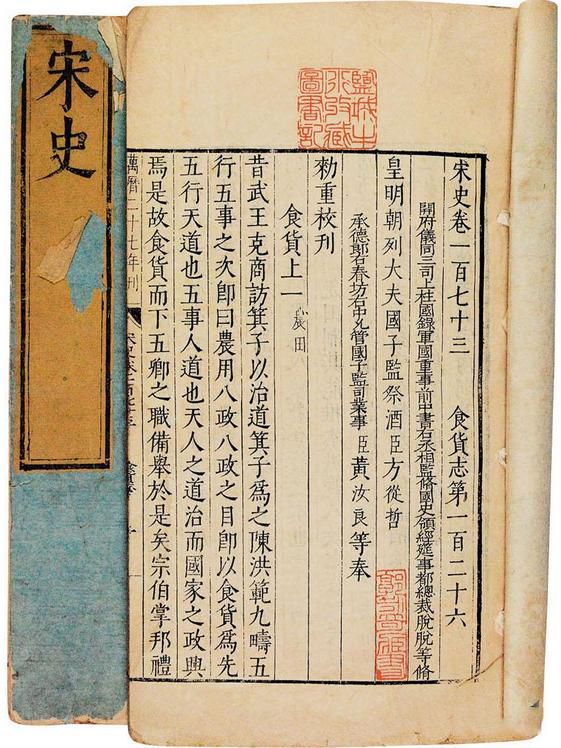 宋史卷一百七十三 食貨志第一百二十六
開府儀同三司上柱國錄軍國重事前中書右丞相監脩國史領經筵事都總裁脫脫等脩
皇明朝列大夫國子監祭酒臣方從哲
承德郎右春坊右中允管國子監司業事臣黃汝良等奉
勑重校刊
食貨上一 農田
昔武王克商訪箕子以治道箕子爲之陳洪範九疇五
行五事之次卽曰農用八政八政之目卽以食貨爲先
五行天道也五事人道也天人之道治而國家之政興
焉是故食貨而下五卿之職備舉於是矣宗伯掌邦禮
萬曆二十七年刊
宋史